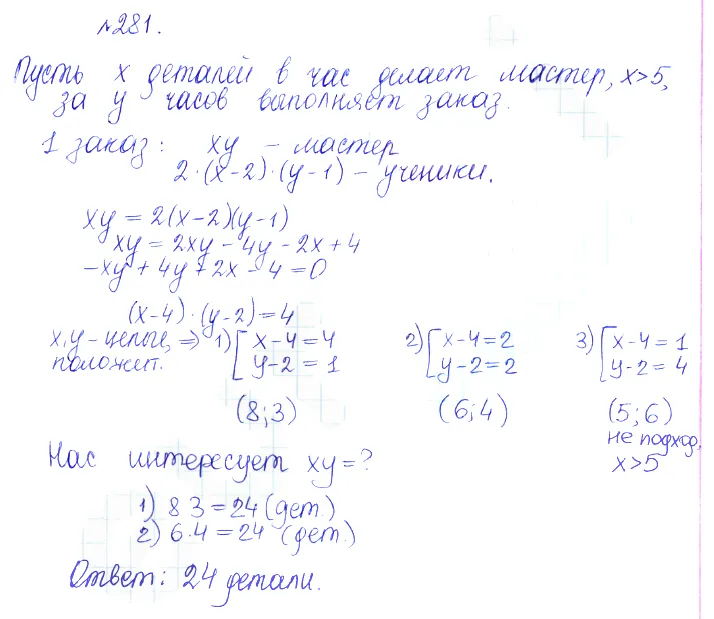 №281.
Пусть x деталей в час делает мастер, x>5,
за y часов выполняет заказ.
1 заказ: xy – мастер
2·(x-2)·(y-1) – ученики.
xy = 2(x-2)(y-1)
xy = 2xy - 4y - 2x + 4
-xy + 4y + 2x - 4 = 0
(x-4)·(y-2)=4
x,y – целые, ⇒ 1) [ x-4=4 2) [ x-4=2 3) [ x-4=1
положит. y-2=1 y-2=2 y-2=4
(8;3) (6;4) (5;6)
не подход,
x>5
Нас интересует xy=?
1) 8 3=24 (дет.)
2) 6·4=24 (дет.)
Ответ: 24 детали.